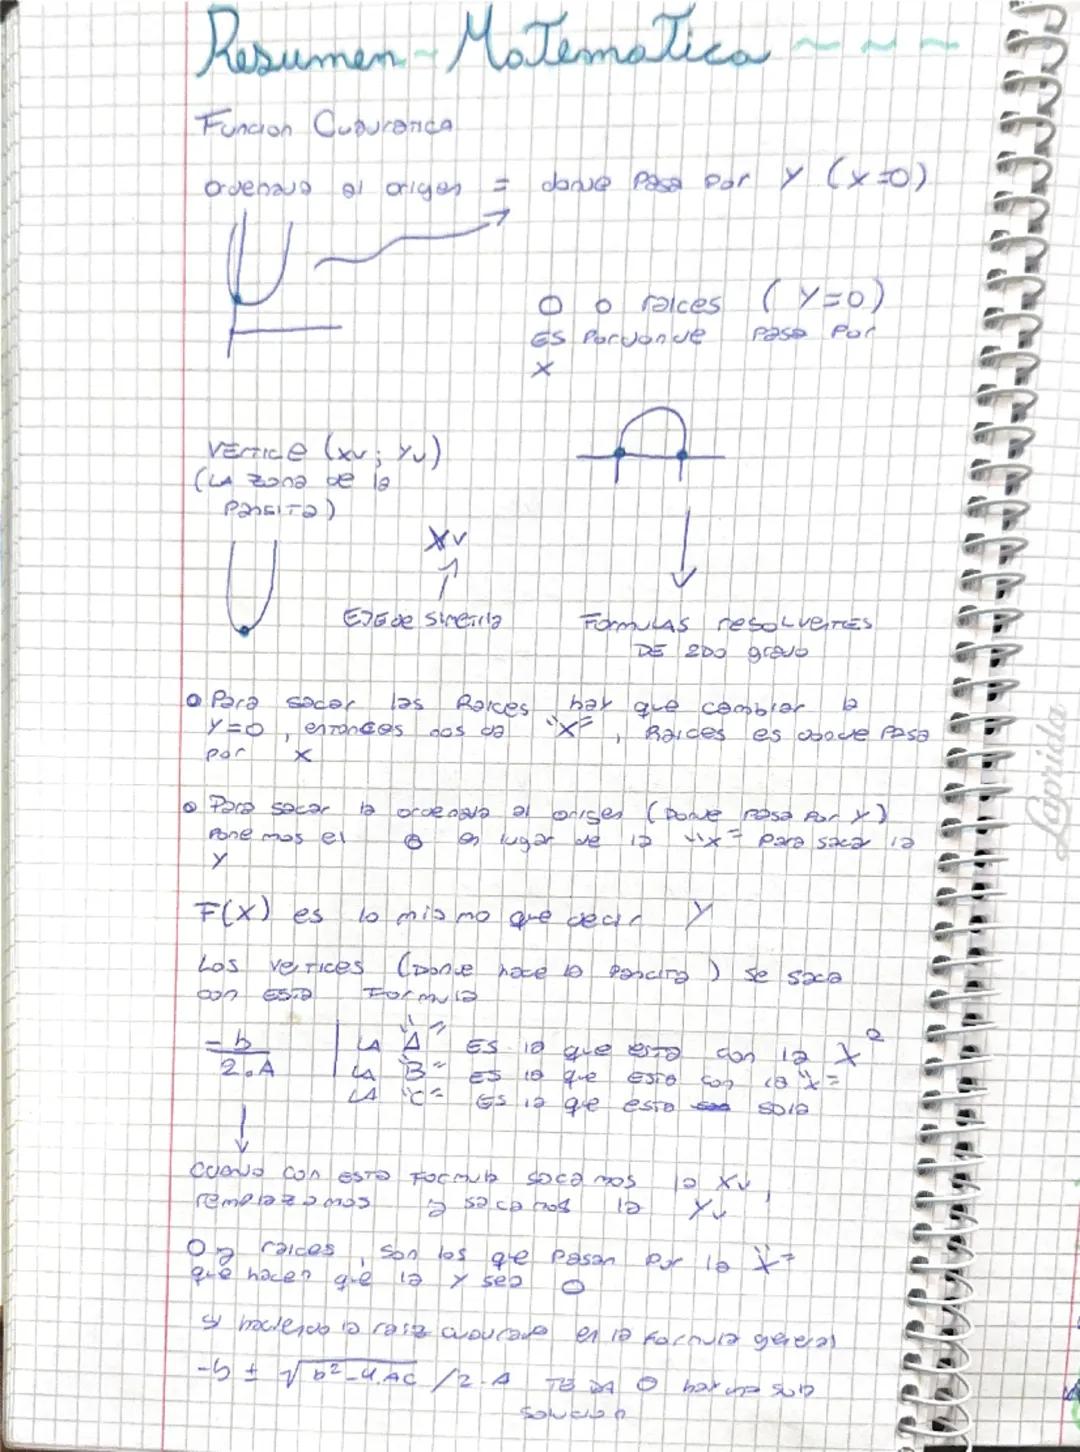 Resumen - Matematica ~ ~ ~
Funcion Cuadratica
ordenada al origen = donde pasa por Y (x=0)
0 o raices (Y=0)
Es por donde pasa por
X
VERTICE (xv; Yv)
(LA zona de la
pansita)
Xv
EJE de simetria
FORMULAS resolventes
DE 2DO grado
o Para sacar las Raices hay que cambiar la
Y=0, entonces nos da "X", Raices es donde pasa
por X
o Para sacar la ordenada al origen (Donde pasa por Y)
Ponemos el 0 en lugar de la "x" para sacar la
Y
F(X) es lo mismo que decir Y
Los vertices (Donde hace la pancita) se saca
con esta Formula
-b
2.A
LA "A" ES la que esta con la X²
LA "B" ES la que esta con la "x"
LA "C" ES la que esta sola
Cuando con esta formula sacamos la Xv,
remplazamos y sacamos la Yv
0 y raices, son los que pasan por la "X"
que hacen que la Y sea 0
si haciendo la raiz cuadrada en la formula general
-b ± √b²-4.AC /2.A TE DA 0 hay una sola
solucion
Laprida